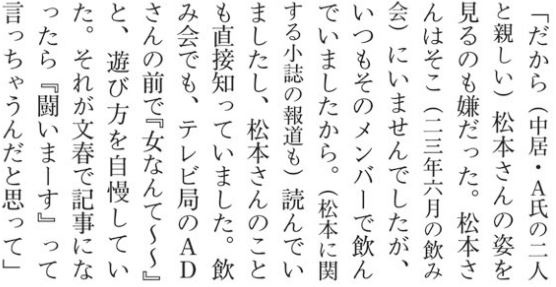 「だから（中居・A氏の二人
と親しい）松本さんの姿を
見るのも嫌だった。松本さ
んはそこ（二三年六月の飲み
会）にいませんでしたが、
いつもそのメンバーで飲ん
でいましたから。（松本に関
する小誌の報道も）読んでい
ましたし、松本さんのこと
も直接知っていました。飲
み会でも、テレビ局のAD
さんの前で『女なんて〜〜』
と、遊び方を自慢してい
た。それが文春で記事にな
ったら『闘いまーす』って
言っちゃうんだと思って」